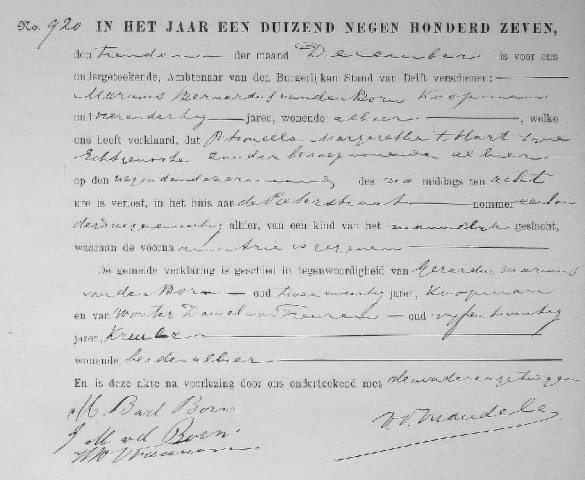 No. 920 IN HET JAAR EEN DUIZEND NEGEN HONDERD ZEVEN,
den tienden der maand December is voor ons
ondergeteekende, Ambtenaar van den Burgerlijken Stand van Delft verschenen:
Marinus Bernardus van den Born Koopman
oud jaren, wonende alhier, welke
ons heeft verklaard, dat Petronella Margaretha 't Hart zijne
Echtgenoote zonder beroep wonende alhier
op den negenden dezer maand des na middags ten acht
ure is verlost, in het huis aan de Pieterstraat nommer
alhier, van een kind van het mannelijk geslacht,
waaraan de voornaam Arie is gegeven
De gemelde verklaring is geschied in tegenwoordigheid van Gerardus Marinus
van den Born oud jaren, Koopman
en van Wouter Daniel van oud vijf en twintig
jaren,
wonende beiden alhier
En is deze akte na voorlezing door ons onderteekend met den vader en getuigen
M. Bard Born
G M v d Born